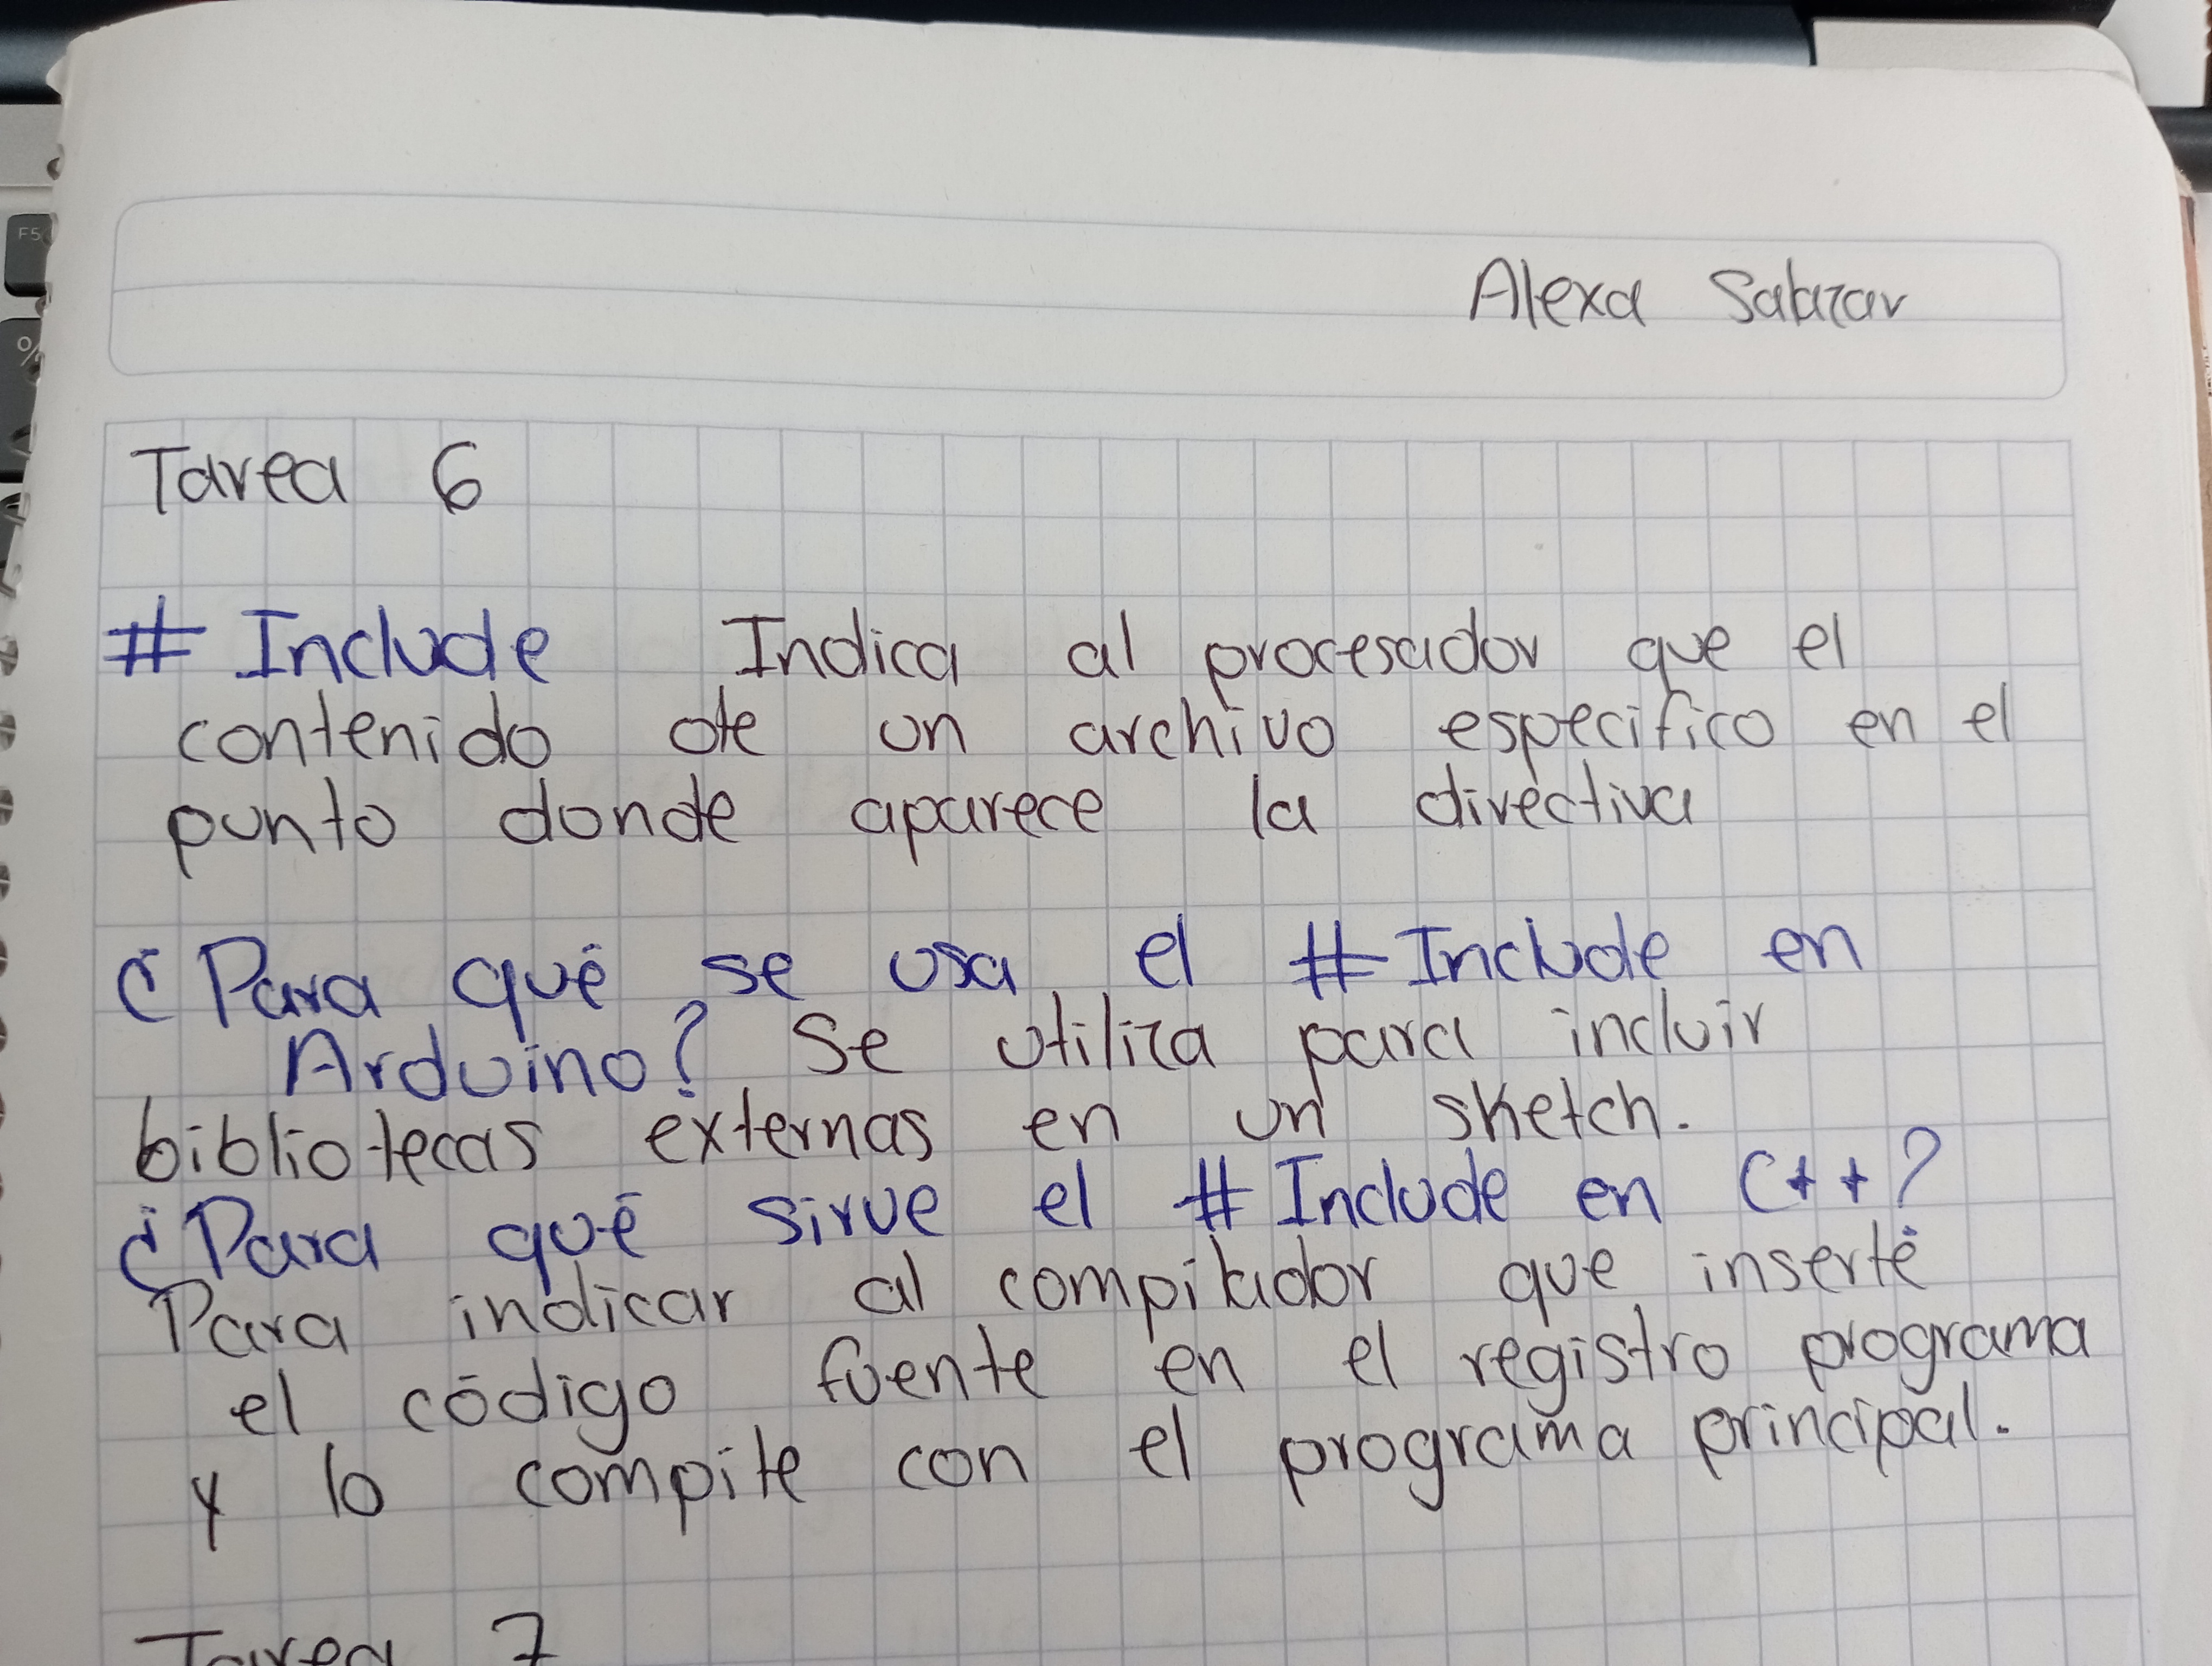 Alexa Salazar
Tarea 6
# Include Indica al procesador que el
contenido de un archivo especifico en el
punto donde aparece la directiva
¿Para qué se usa el # Include en
Arduino? Se utiliza para incluir
bibliotecas externas en un sketch.
¿Para qué sirve el # Include en C++?
Para indicar al compilador que inserté
el código fuente en el registro programa
y lo compile con el programa principal.
Tarea 7
F5
%